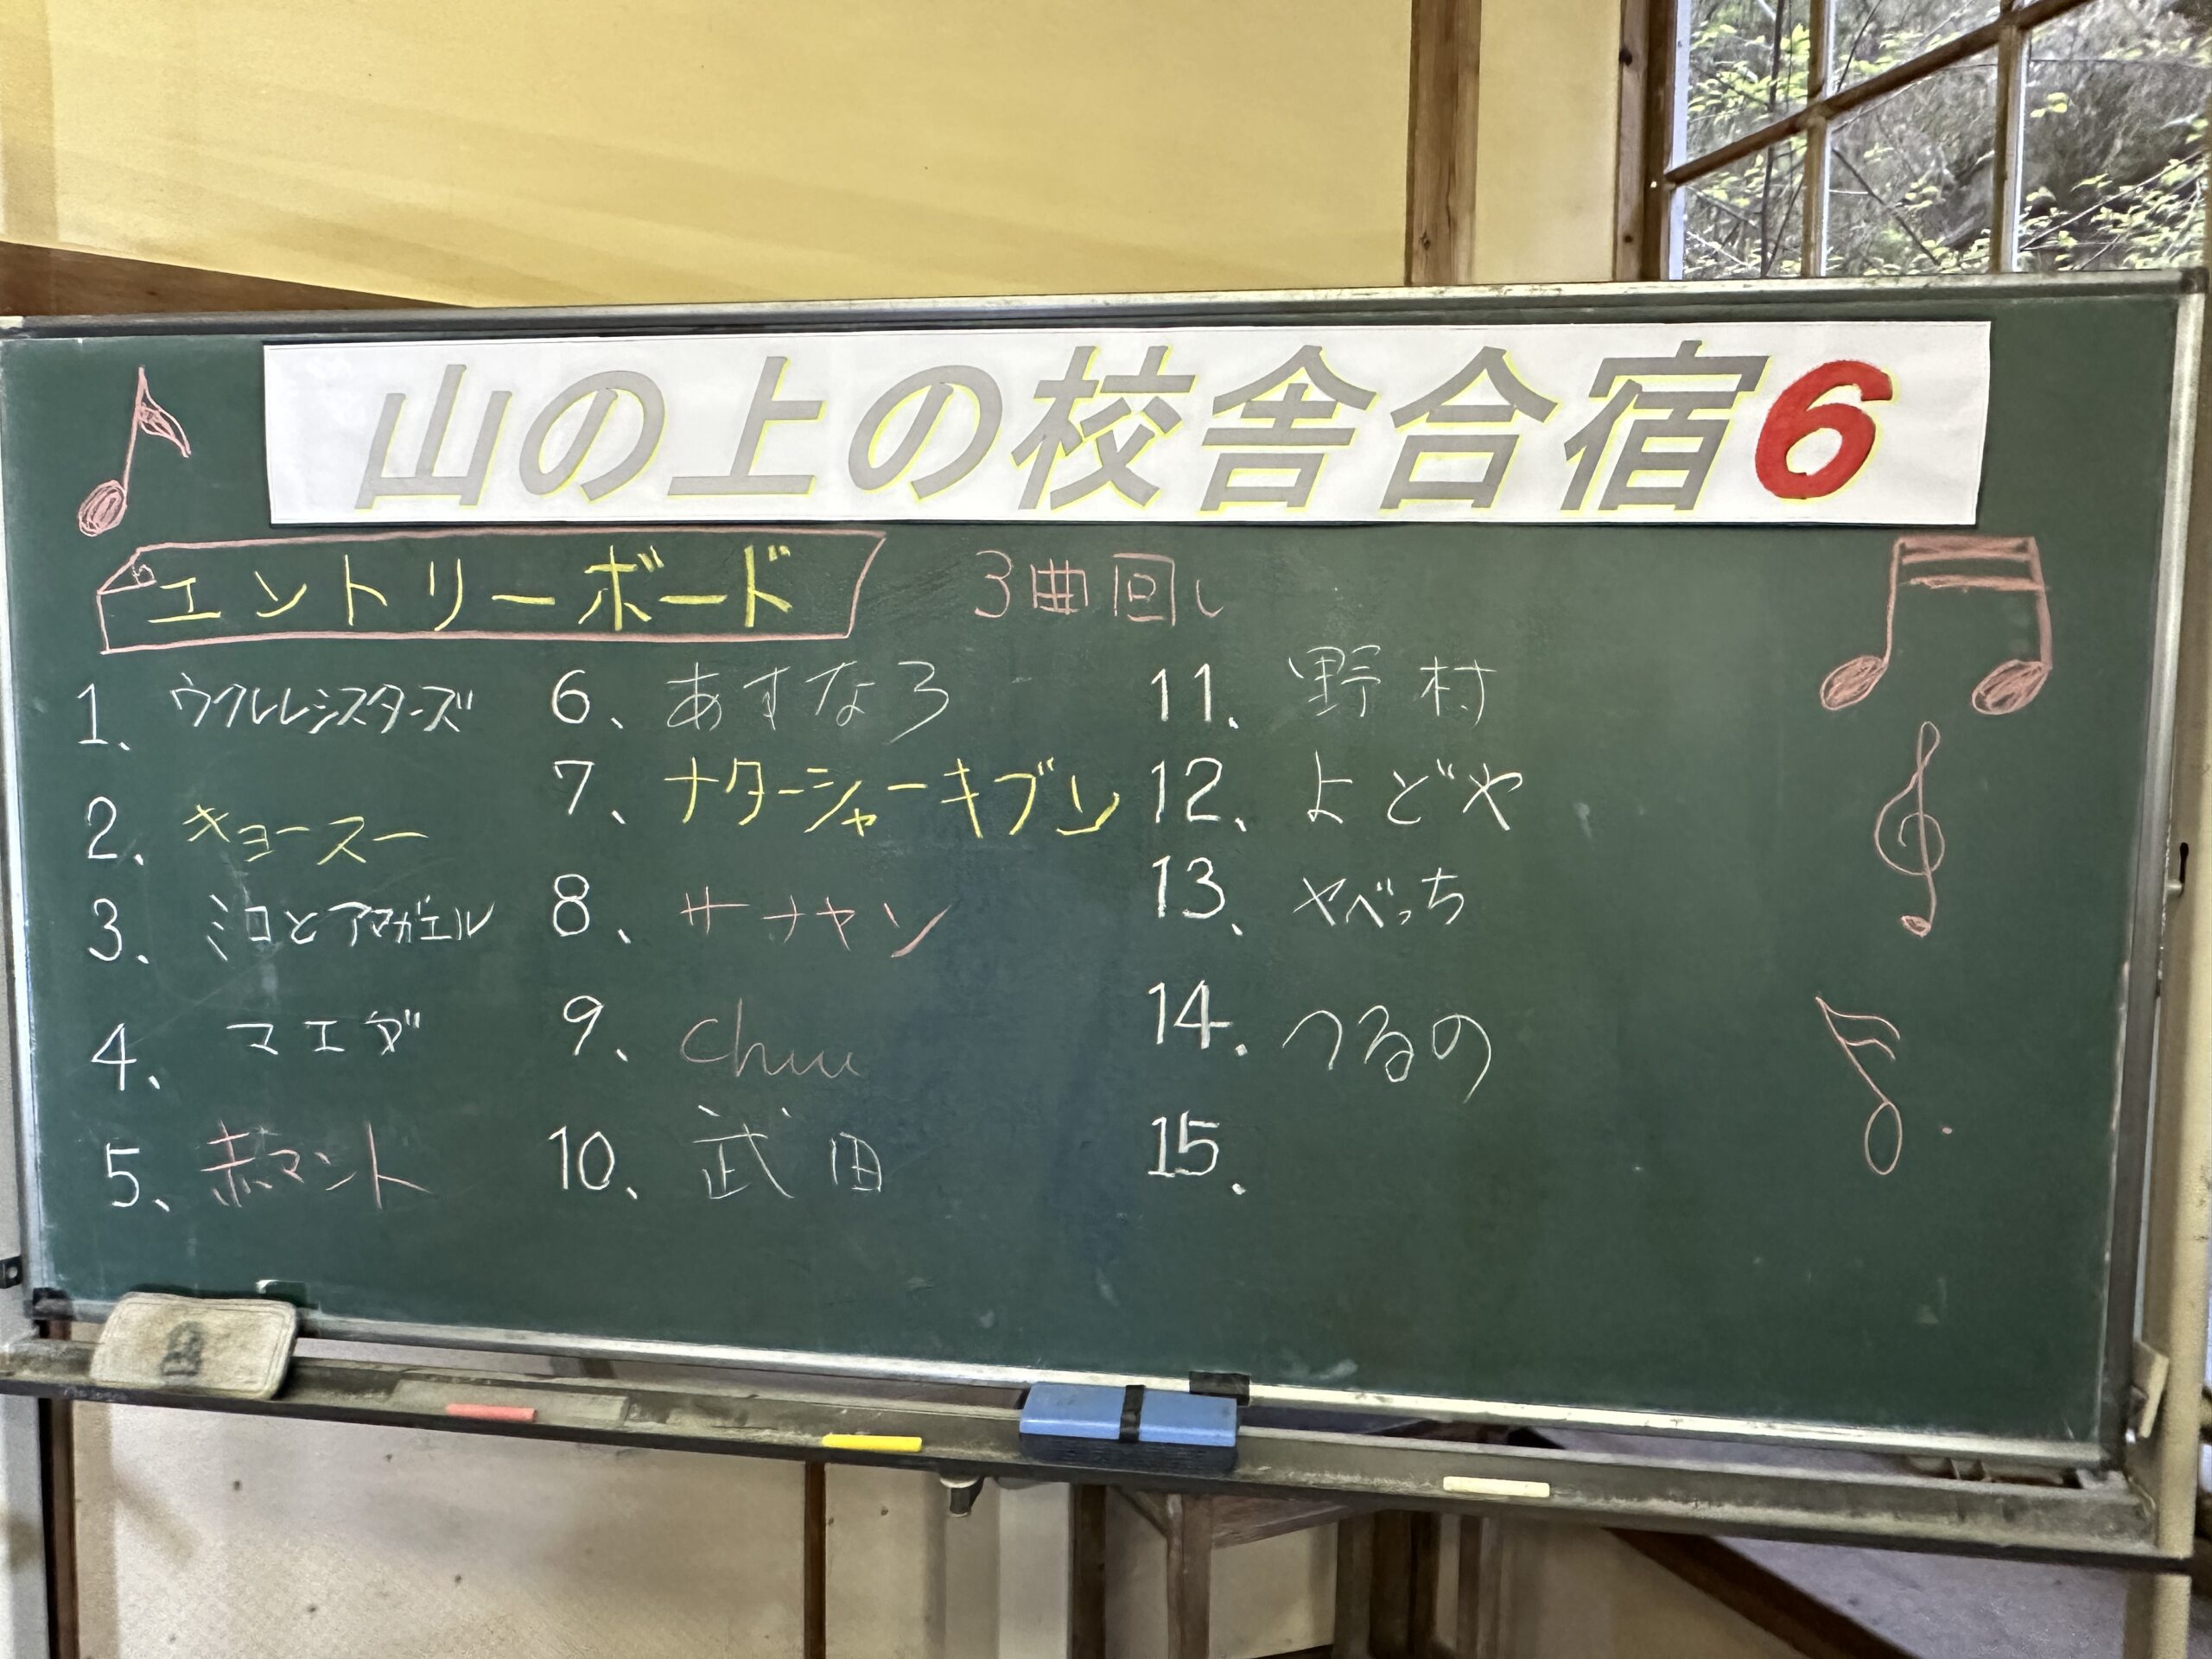 山の上の校舎合宿6
エントリーボード
3曲回し
1、ウクルレシスターズ
2、キョースー
3、ミコとアマガエル
4、マエダ
5、赤マント
6、あすなろ
7、ナターシャーキブン
8、サナヤン
9、chuu
10、武田
11、野村
12、よどや
13、やべっち
14.つるの
15.